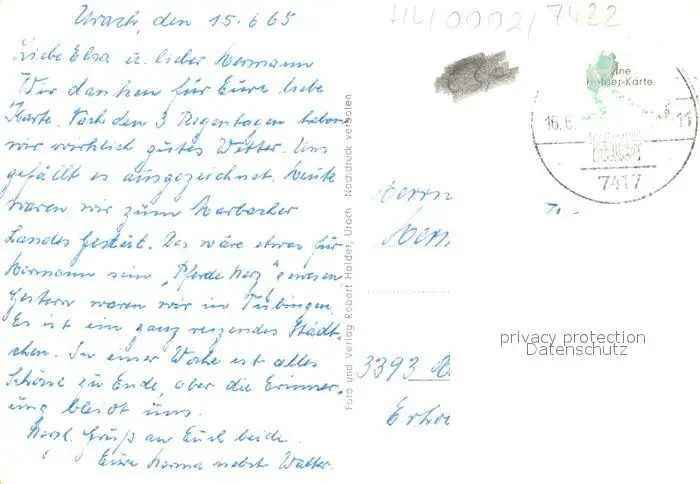 Urach, den 15.6.65
Liebe Elsa u. lieber Hermann
Wir danken für Eure liebe
Karte. Nach den 3 Regentagen haben
wir wirklich gutes Wetter. Uns
gefällt es ausgezeichnet. Heute
waren wir zum Marbacher
Landesgestüt. Das wäre etwas für
Hermann sein „Pferdeherz" gewesen
Gestern waren wir in Tübingen.
Es ist ein ganz reizendes Städt-
chen. In einer Woche ist alles
Schöne zu Ende, aber die Erinner-
ung bleibt uns.
Herzl. Gruß an Euch beide.
Eure Herma nebst Walter.
Foto und Verlag Robert Holder, Urach Nachdruck verboten
HL/0002/7422
ine
Holder-Karte
16.6. 11
7417
Herrn
Herm
3393
privacy protection
Datenschutz